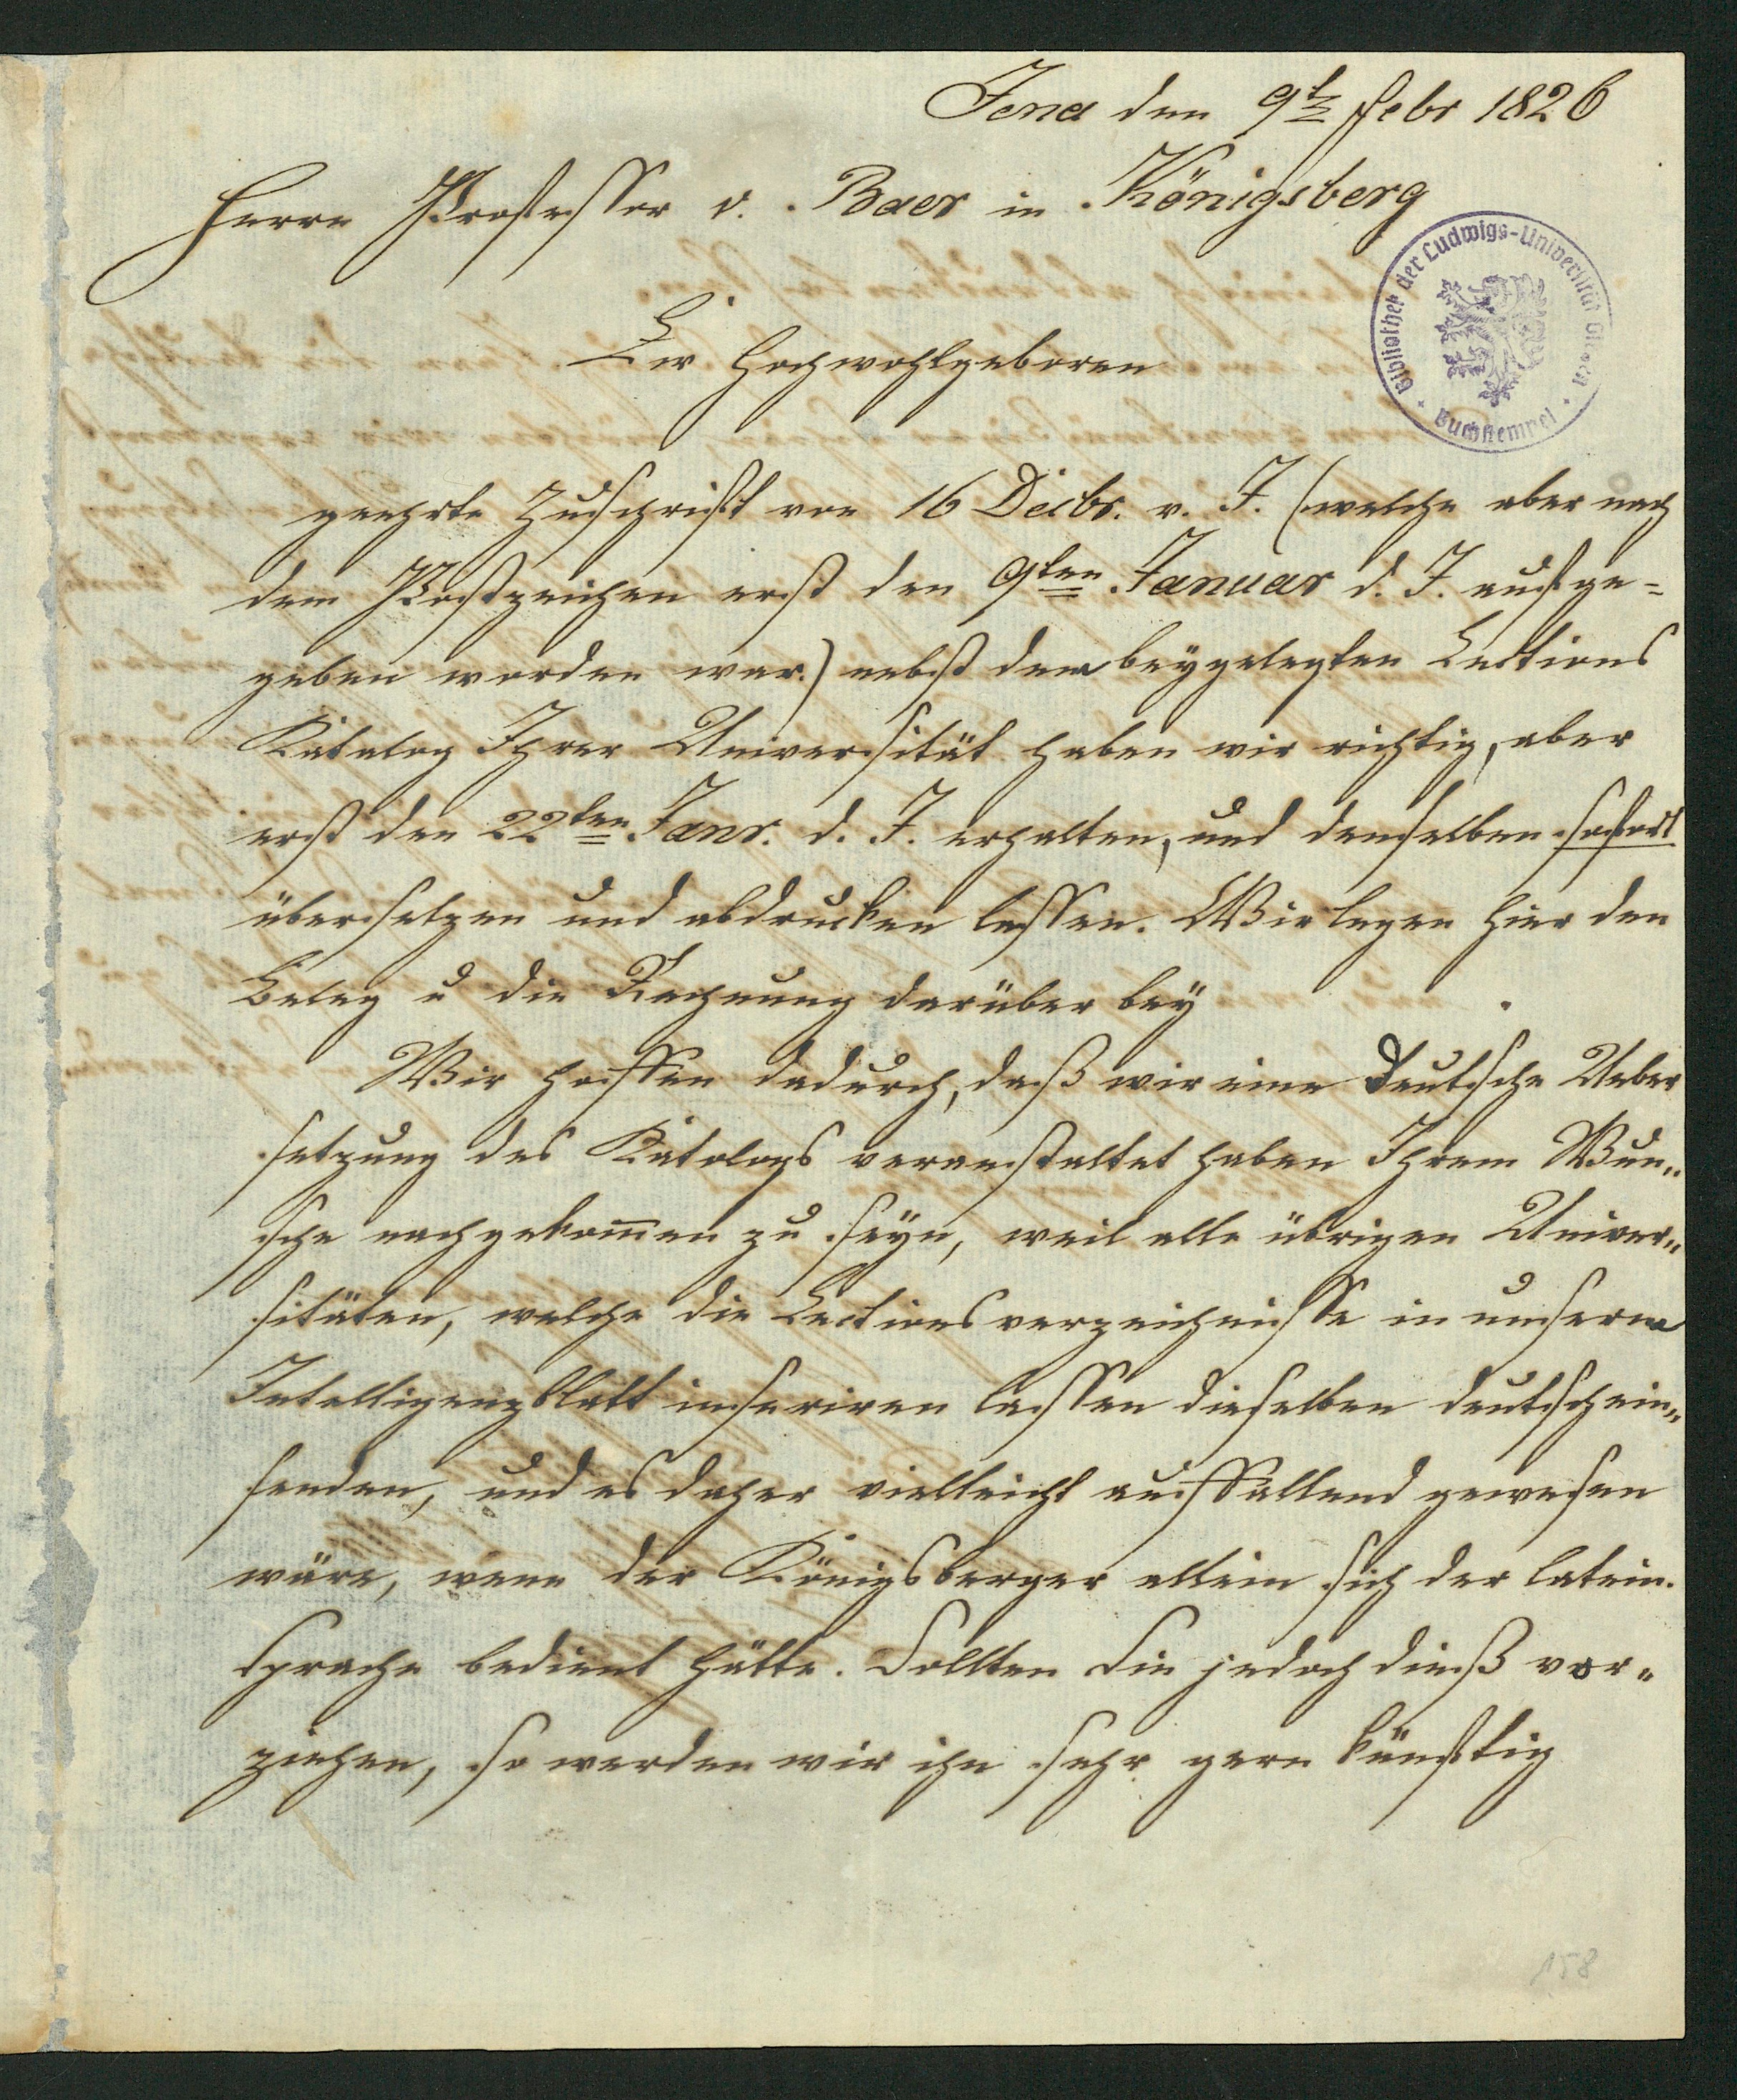 Jena den 9t Febr 1826
Herrn Professor v. Baer in Königsberg
Bibliothek der Ludwigs-Universität Giessen
Buchstempel
Ew Hochwohlgeboren
geehrte Zuschrift von 16 Decbr. v. J. (welche aber nach
dem Postzeichen erst den 9ten Januar d. J. aufge=
geben worden war.) nebst dem beygelegten Lections
Katalog Ihrer Universität haben wir richtig, aber
erst den 22ten Janr. d. J. erhalten, und denselben sofort
übersetzen und abdrucken lassen. Wir legen hier den
Beleg u die Rechnung darüber bey
Wir hoffen dadurch, daß wir eine Deutsche Ueber
setzung des Katalogs veranstaltet haben Ihrem Wun„
sche nachgekom̅en zu seyn, weil alle übrigen Univer„
sitäten, welche die Lectionsverzeichnisse in unserm
Intelligenzblatt inseriren lassen dieselben deutsch ein„
senden, und es daher vielleicht auffallend gewesen
wäre, wenn der Königsberger allein sich der latein.
Sprache bedient hätte. Sollten Sie jedoch dieß vor„
ziehen, so werden wir ihn sehr gern künftig
158